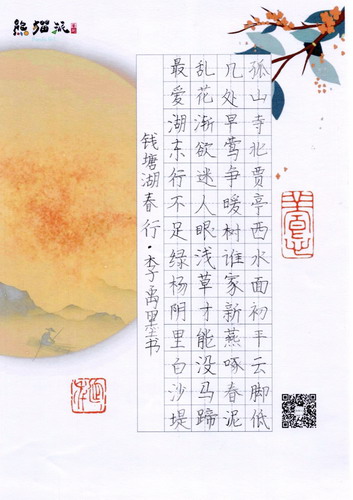 熊猫派
孤山寺北贾亭西水面初平云脚低
几处早莺争暖树谁家新燕啄春泥
乱花渐欲迷人眼浅草才能没马蹄
最爱湖东行不足绿杨阴里白沙堤
钱塘湖春行·李禹墨书